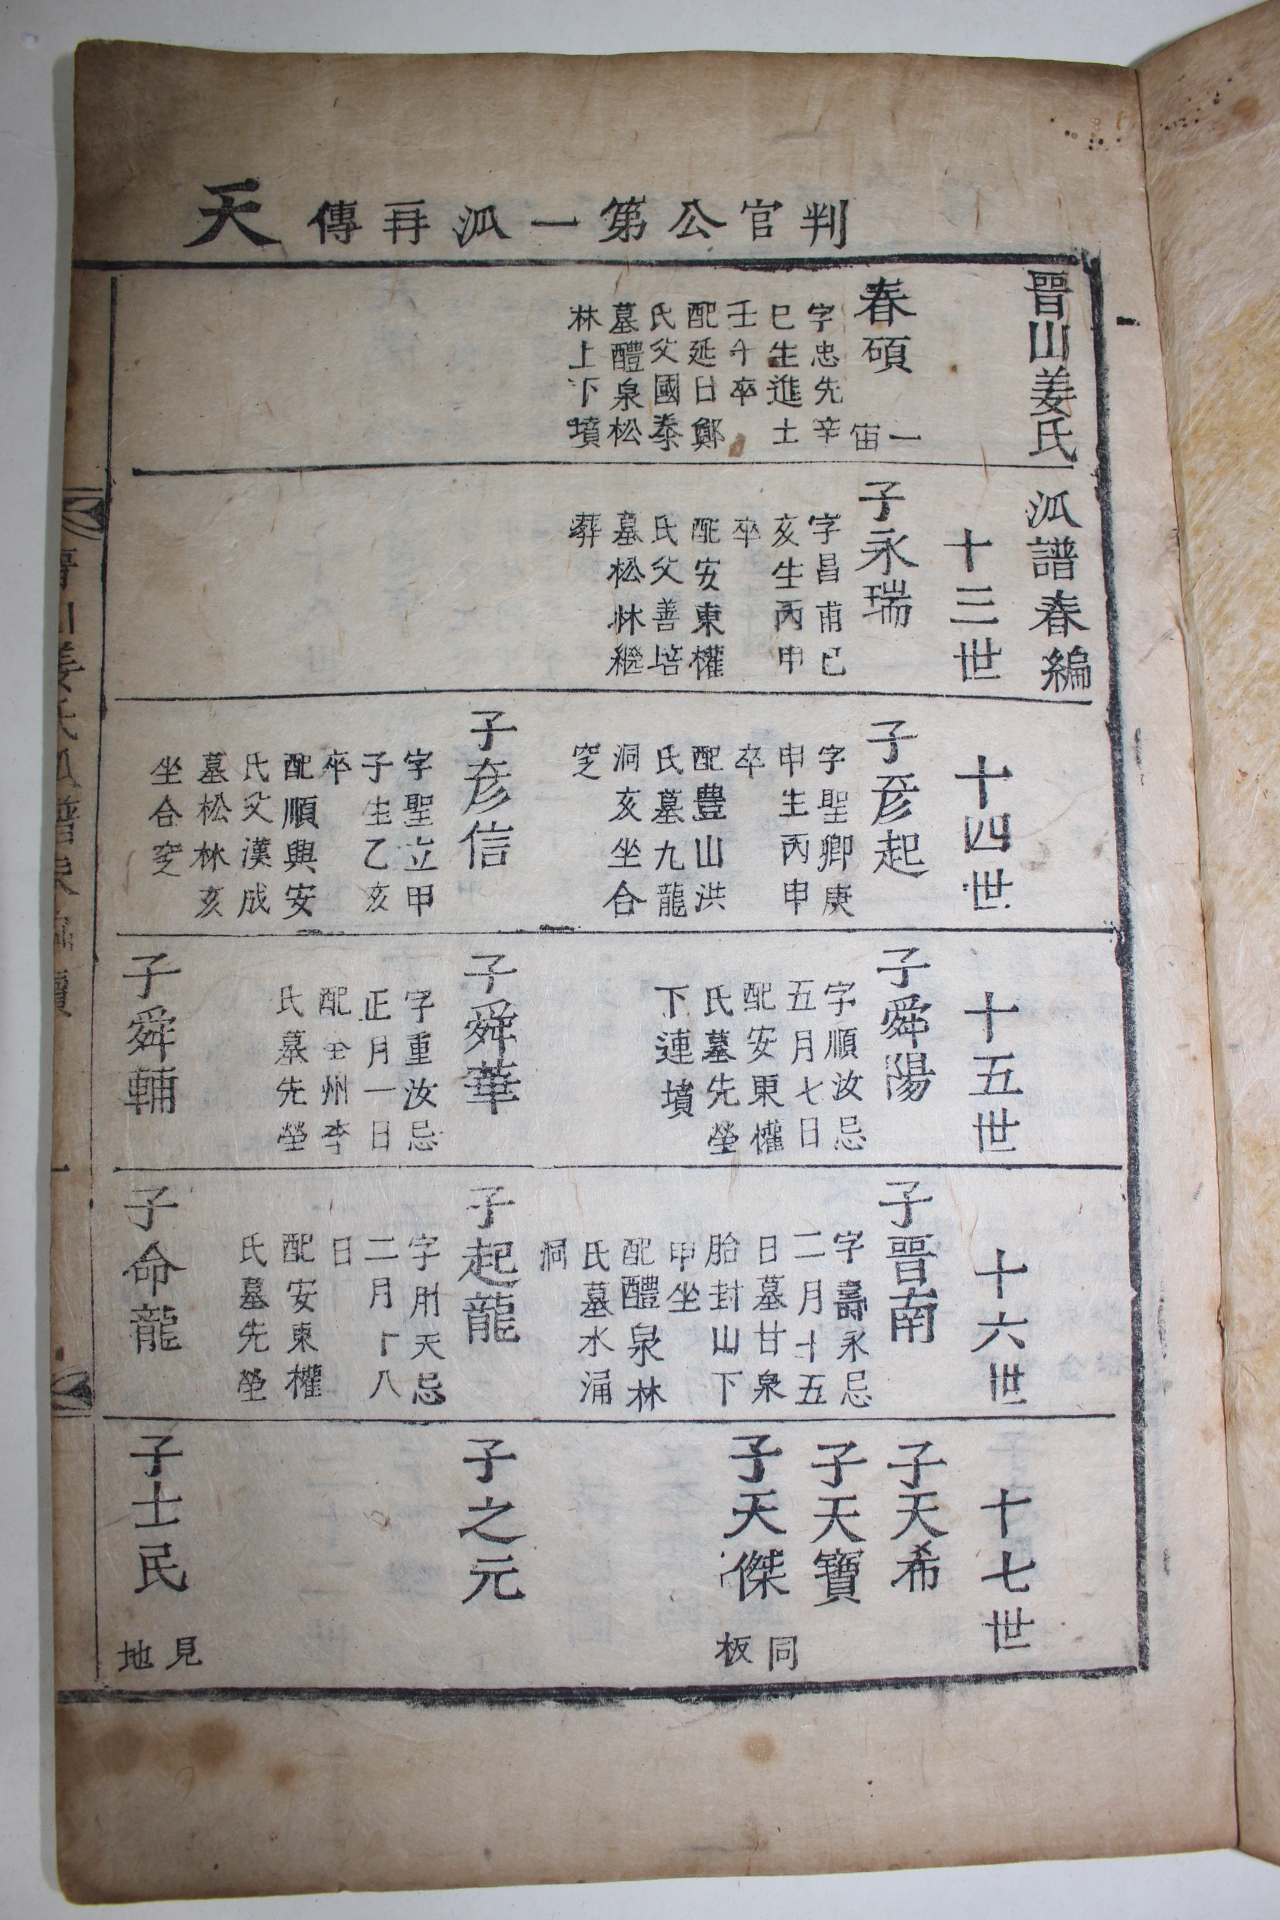 判官公第一派再傳 天
晉山姜氏派譜春編
春碩
字忠先辛
巳生進士
壬午卒
配延日鄭
氏父國泰
墓醴泉松
林上下墳
一
宙
十三世
子永瑞
字昌甫已
亥生丙申
卒
配安東權
氏父善培
墓松林繼
葬
十四世
子彦起
字聖卿庚
申生丙申
卒
配豊山洪
氏墓九龍
洞亥坐合
窆
子彦信
字聖立甲
子生乙亥
卒
配順興安
氏父漢成
墓松林亥
坐合窆
十五世
子舜陽
字順汝忌
五月七日
配安東權
氏墓先塋
下連墳
子舜華
字重汝忌
正月一日
配全州李
氏墓先塋
子舜輔
十六世
子晉南
字壽永忌
二月十五
日墓甘泉
胎封山下
甲坐
配醴泉林
氏墓水涌
洞
子起龍
字天忌
二月十八
日
配安東權
氏墓先塋
子命龍
十七世
子天希
子天寶
子天傑
同
板
子之元
子士民
見
地